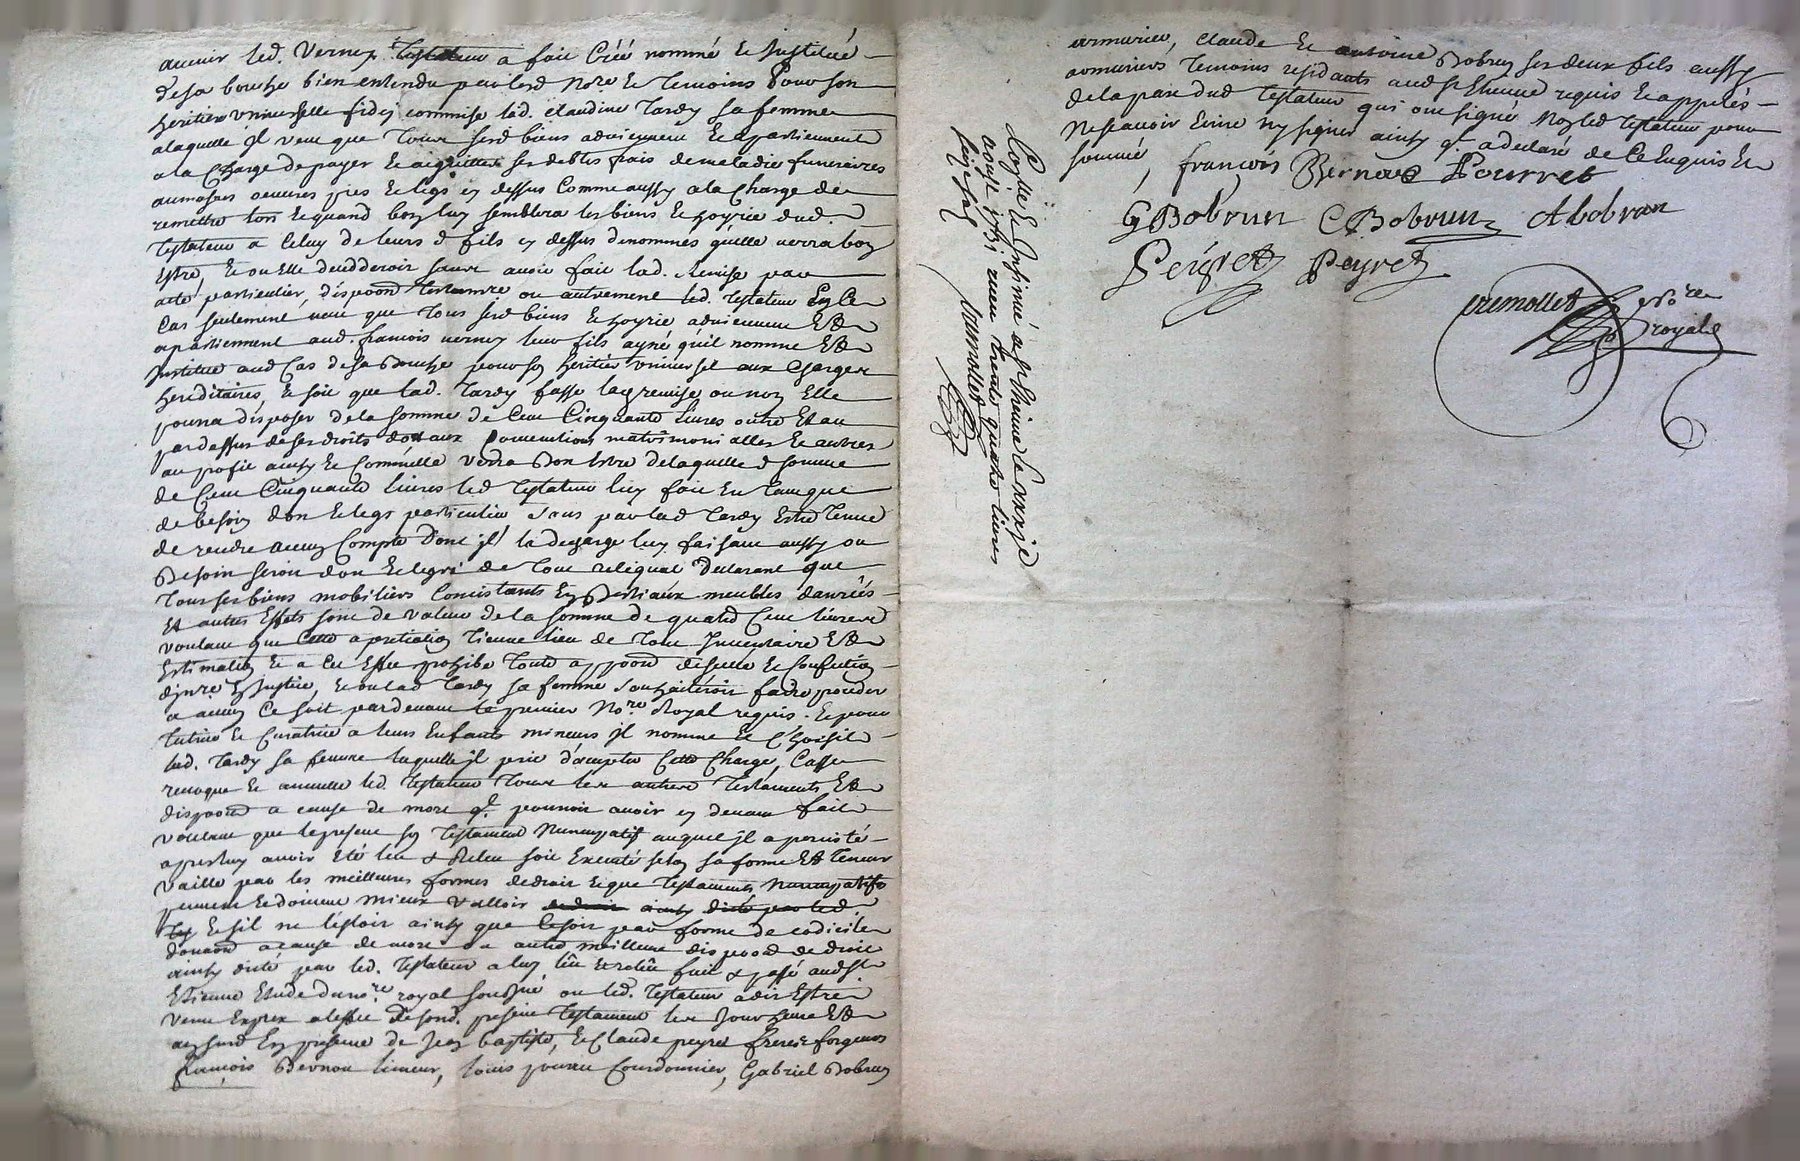 avenir led. Verney testateur a fait Créé nommé et Institué
de sa bouche bien entendu par led Nore et temoins pour son
heritiere universelle fidej commise lad. Claudine Tardy sa femme
a laquelle il veut que tous sesd biens adviennent et apartiennent
a la Charge de payer et aiquitter ses debtes frais de maladie funeraires
aumosnes oeuvres pies et legs cy dessus Comme aussy a la Charge de
remettre lors et quand bon luy semblera les biens et hoyrie dud.
testateur a Celuy de leurs d fils cy dessus denommes quelle verra bon
Estre, Et ou Elle decedderoit sans avoir fait lad. Remise par
acte particulier, dispoon testamre ou autrement led. testateur En Ce
Cas seulement veut que tous sesd biens et hoyrie adviennent Et
apartiennent aud. francois verney leur fils ayné qu'il nomme Et
Institue aud Cas de sa Bouche pour son heritier universel aux Charges
hereditaires, Et soit que lad. Tardy fasse lad remise ou non Elle
pourra disposer de la somme de Cent Cinquante livres outre Et au
par dessus de ses droits dotaux Conventions matrimonialles et autres
au profit ainsy et Comm'elle verra Bon Estre de laquelle d somme
de Cent Cinquante livres led testateur luy fait En tant que
de besoin don et legs particulier sans par lad Tardy Estre tenue
de rendre aucun Compte dont il la decharge luy faisant aussy ou
Besoin seroit don et legs de tout reliquat Declarant que
tous ses biens mobiliers Consistants En Bestiaux meubles danrées
Et autres Effets sont de valeur de la somme de quatre Cent livres
voulant que Cette apretiation tienne lieu de tout Inventaire Et
Estimation et a Cet Effet prohibe toute appoon de scellé et Confection
d'Invre En Justice, et ou lad Tardy sa femme souhaiteroit faire proceder
a aucun Ce soit pardevant le premier Nore Royal requis. Et pour
tutrice et Curatrice a leurs Enfants mineurs il nomme et Choisit
lad. Tardy sa femme laquelle il prie d'accepter Cette Charge, Casse
revoque et annulle led. testateur tous les autres testaments Et
dispoons a cause de mort ql. pourroit avoir cy devant fait
voulant que le present son testament Nuncupatif auquel il a percisté
apres luy avoir Eté leu & Releu soit Executé selon sa forme Et teneur
vaille par les meilleures formes de droit et que testaments Nuncupatifs
peuvent et doivent mieux valloir de droit ainsy dicté par led
Et s'il ne l'estoit ainsy que Ce soit par forme de Codicile
donaon a cause de mort ou autre meilleure dispoon de droit
ainsy dicté par led. testateur a luy lû et relû fait & passé aud St
Etienne Etude du nore royal soussigné ou led. testateur a dit Estre
venu Exprex a l'effet de sond. present testament les Jour heure Et
an susd En presence de Jean baptiste, et Claude peyret freres forgeurs
francois Bernou limeur, louis pourret Courdonnier, Gabriel Bobrun
armurier, Claude et antoine Bobrun ses deux fils aussy
armuriers temoins residants aud St Etienne requis et appelés
de la part dud testateur qui ont signé Non led testateur pour
ne scavoir Ecrire ny signer ainsy ql. a declaré de Ce Enquis Et
sommé, françois Bernou L Pourret
G Bobrun C Bobrun A bobrun
Peyret Peyret
cremollet Nore
royal
Collé Et Insinué a St Etienne le xxxje
aoust 1731 receu trente quatre livres
Cremollet